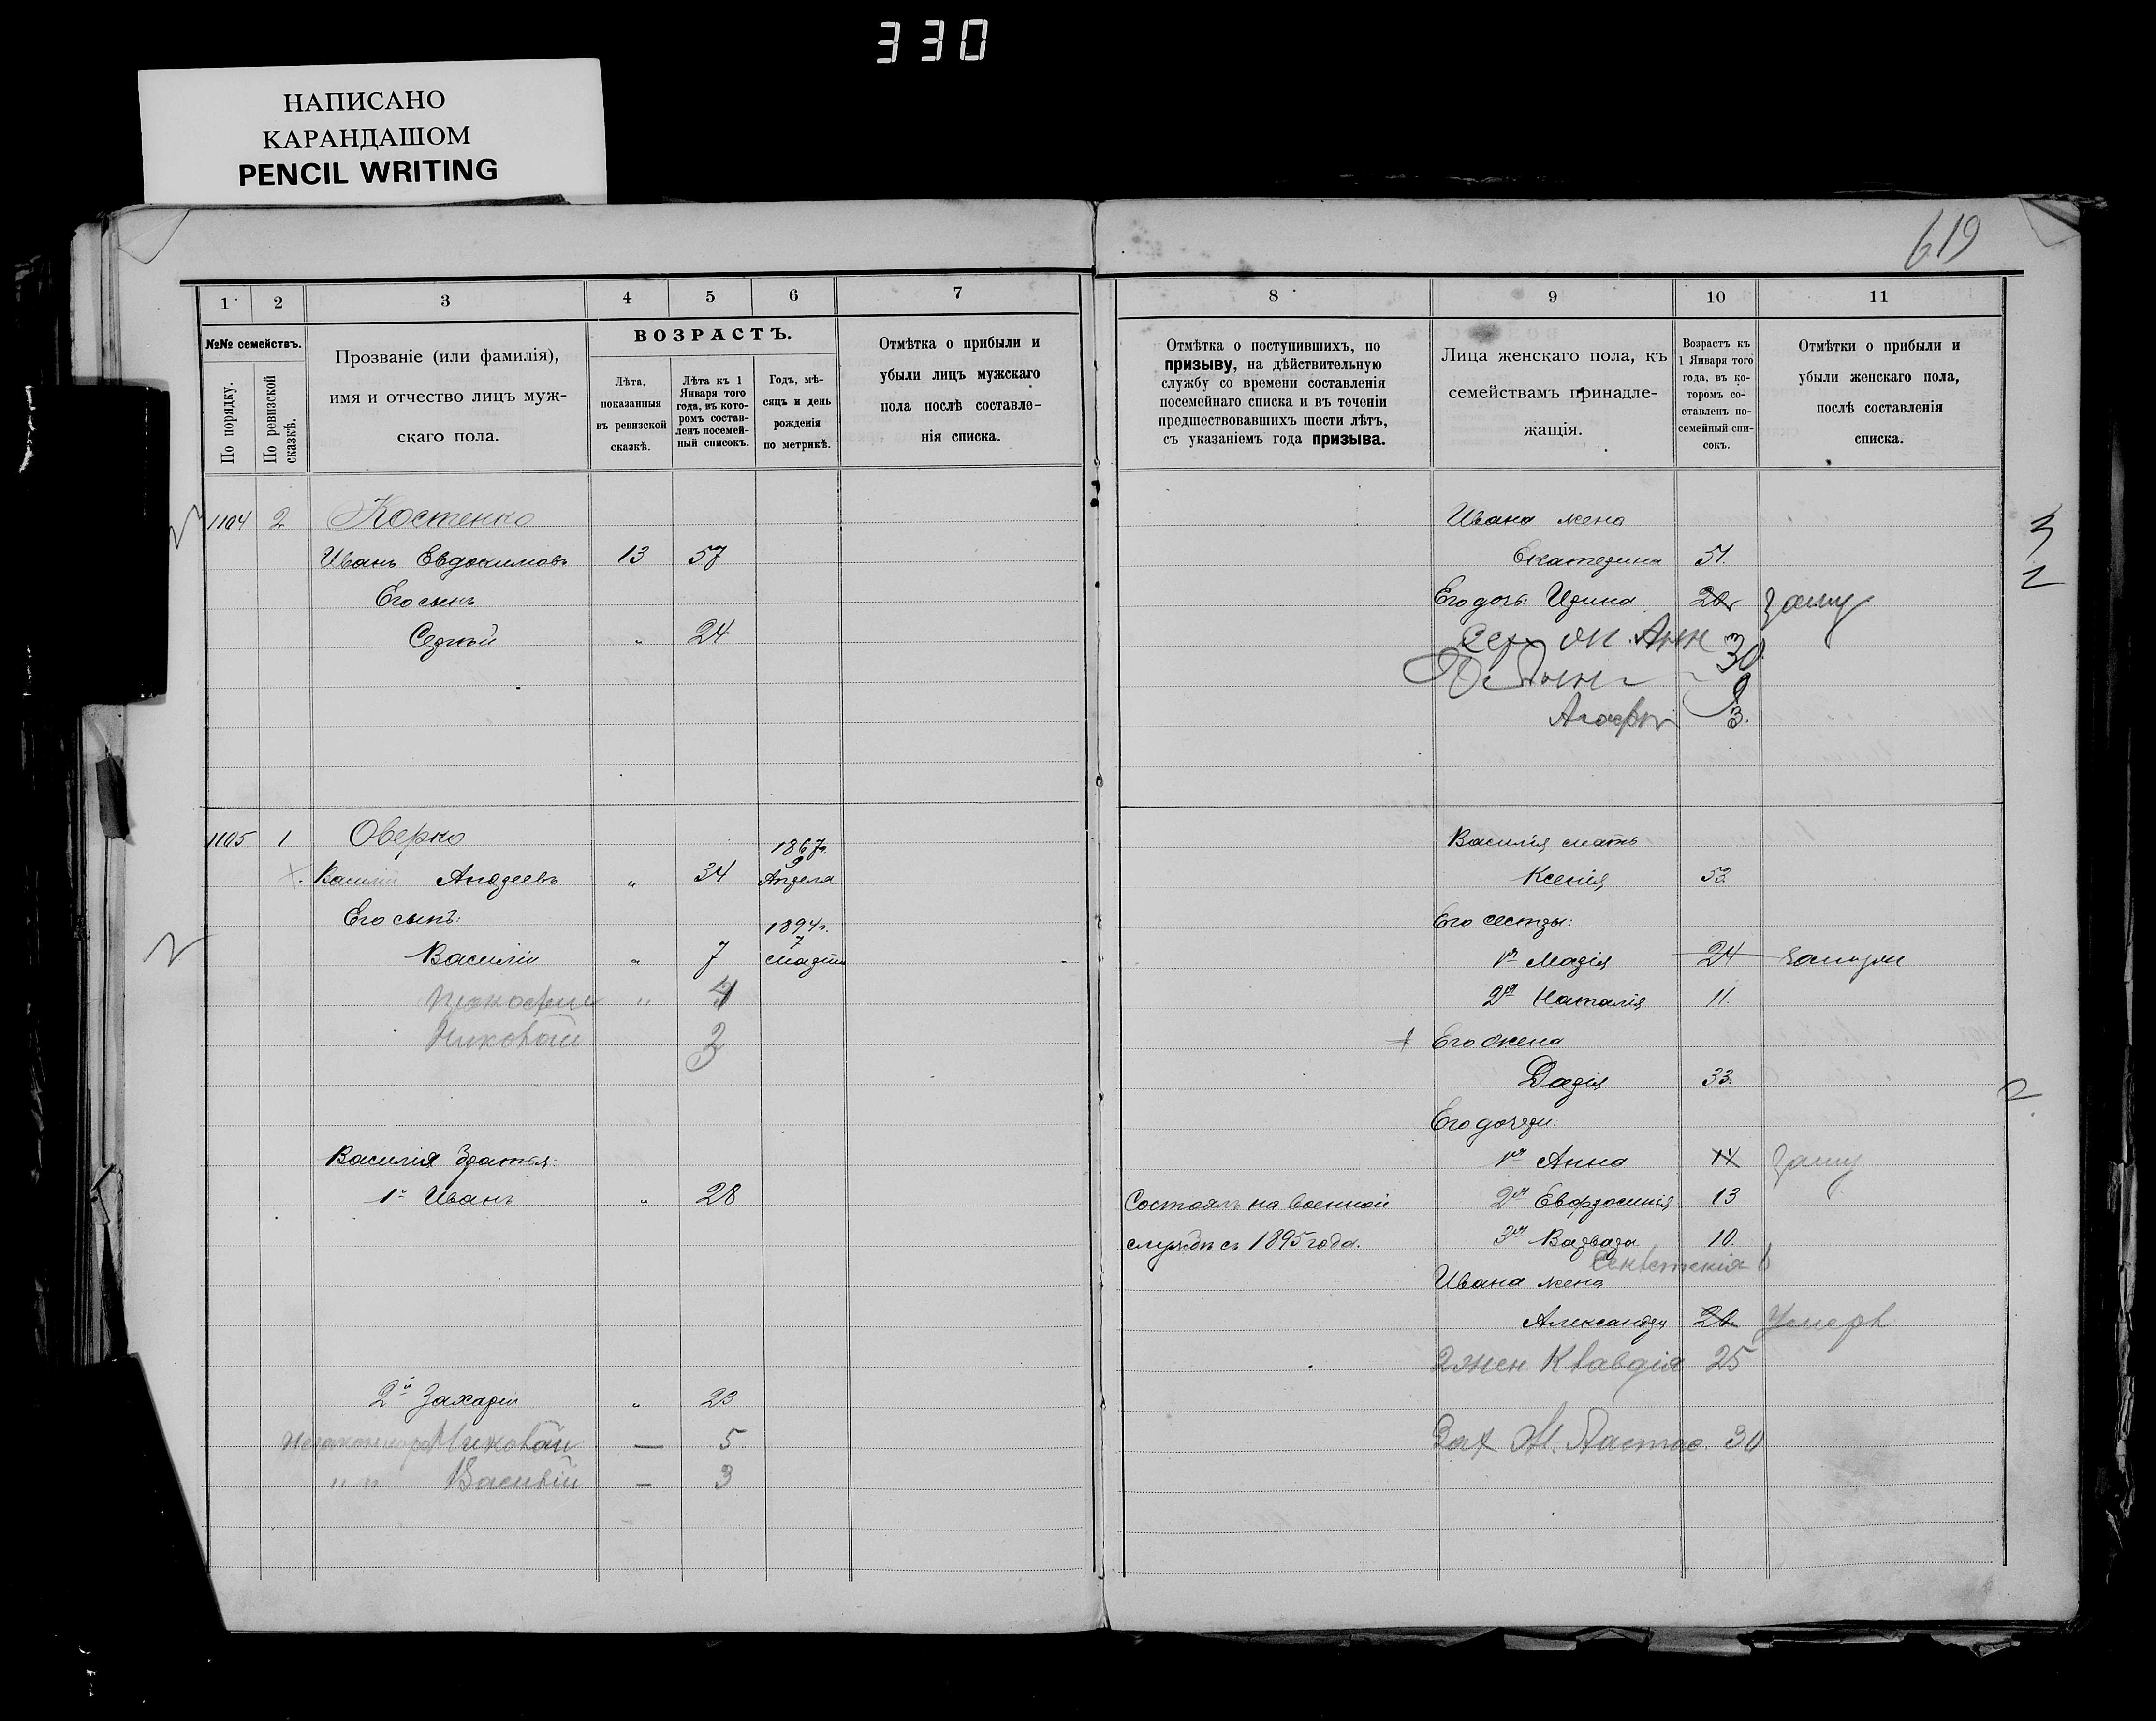 330
НАПИСАНО
КАРАНДАШОМ
PENCIL WRITING
619
1 2 3 4 5 6 7
№№ семействъ.
По порядку.
По ревизской сказкѣ.
Прозваніе (или фамилія),
имя и отчество лицъ муж-
скаго пола.
ВОЗРАСТЪ.
Лѣта,
показанныя
въ ревизской
сказкѣ.
Лѣта къ 1
Января того
года, въ кото-
ромъ состав-
ленъ посемей-
ный списокъ.
Годъ, мѣ-
сяцъ и день
рожденія
по метрикѣ.
Отмѣтка о прибыли и
убыли лицъ мужскаго
пола послѣ составле-
нія списка.
1104 2 Костенко
Иванъ Евдокимовъ 13 57
Его сынъ
Сергѣй " 24
1105 1 Оверко
1867г.
9
Василій Андреевъ " 34 Апреля
Его сынъ:
1894г.
7
Василій " 7 Марта
Прокофий " 4
Николай 3
Василія братья:
1й Иванъ " 28
2й Захарій " 23
Николай — 5
" " Василій — 3
8 9 10 11
Отмѣтка о поступившихъ, по
призыву, на дѣйствительную
службу со времени составленія
посемейнаго списка и въ теченіи
предшествовавшихъ шести лѣтъ,
съ указаніемъ года призыва.
Лица женскаго пола, къ
семействамъ принадле-
жащія.
Возрастъ къ
1 Января того
года, въ ко-
торомъ со-
ставленъ по-
семейный спи-
сокъ.
Отмѣтки о прибыли и
убыли женскаго пола,
послѣ составленія
списка.
Ивана жена
Екатерина 51.
Его дочь Ирина 20 замуж
30
Агафія 3.
Василія мать
Ксенія 53.
Его сестры:
1я Марія 24 замужем
2я Наталія 11.
Его жена
Дарія 33.
Его дочери:
1я Анна 14 замуж
Состоялъ на военной 2я Евфросинія 13
службѣ съ 1895 года. 3я Варвара 10.
Ивана жена
Александра Умерла
2 жен Клавдія 25
Зах Ж. Настас. 30